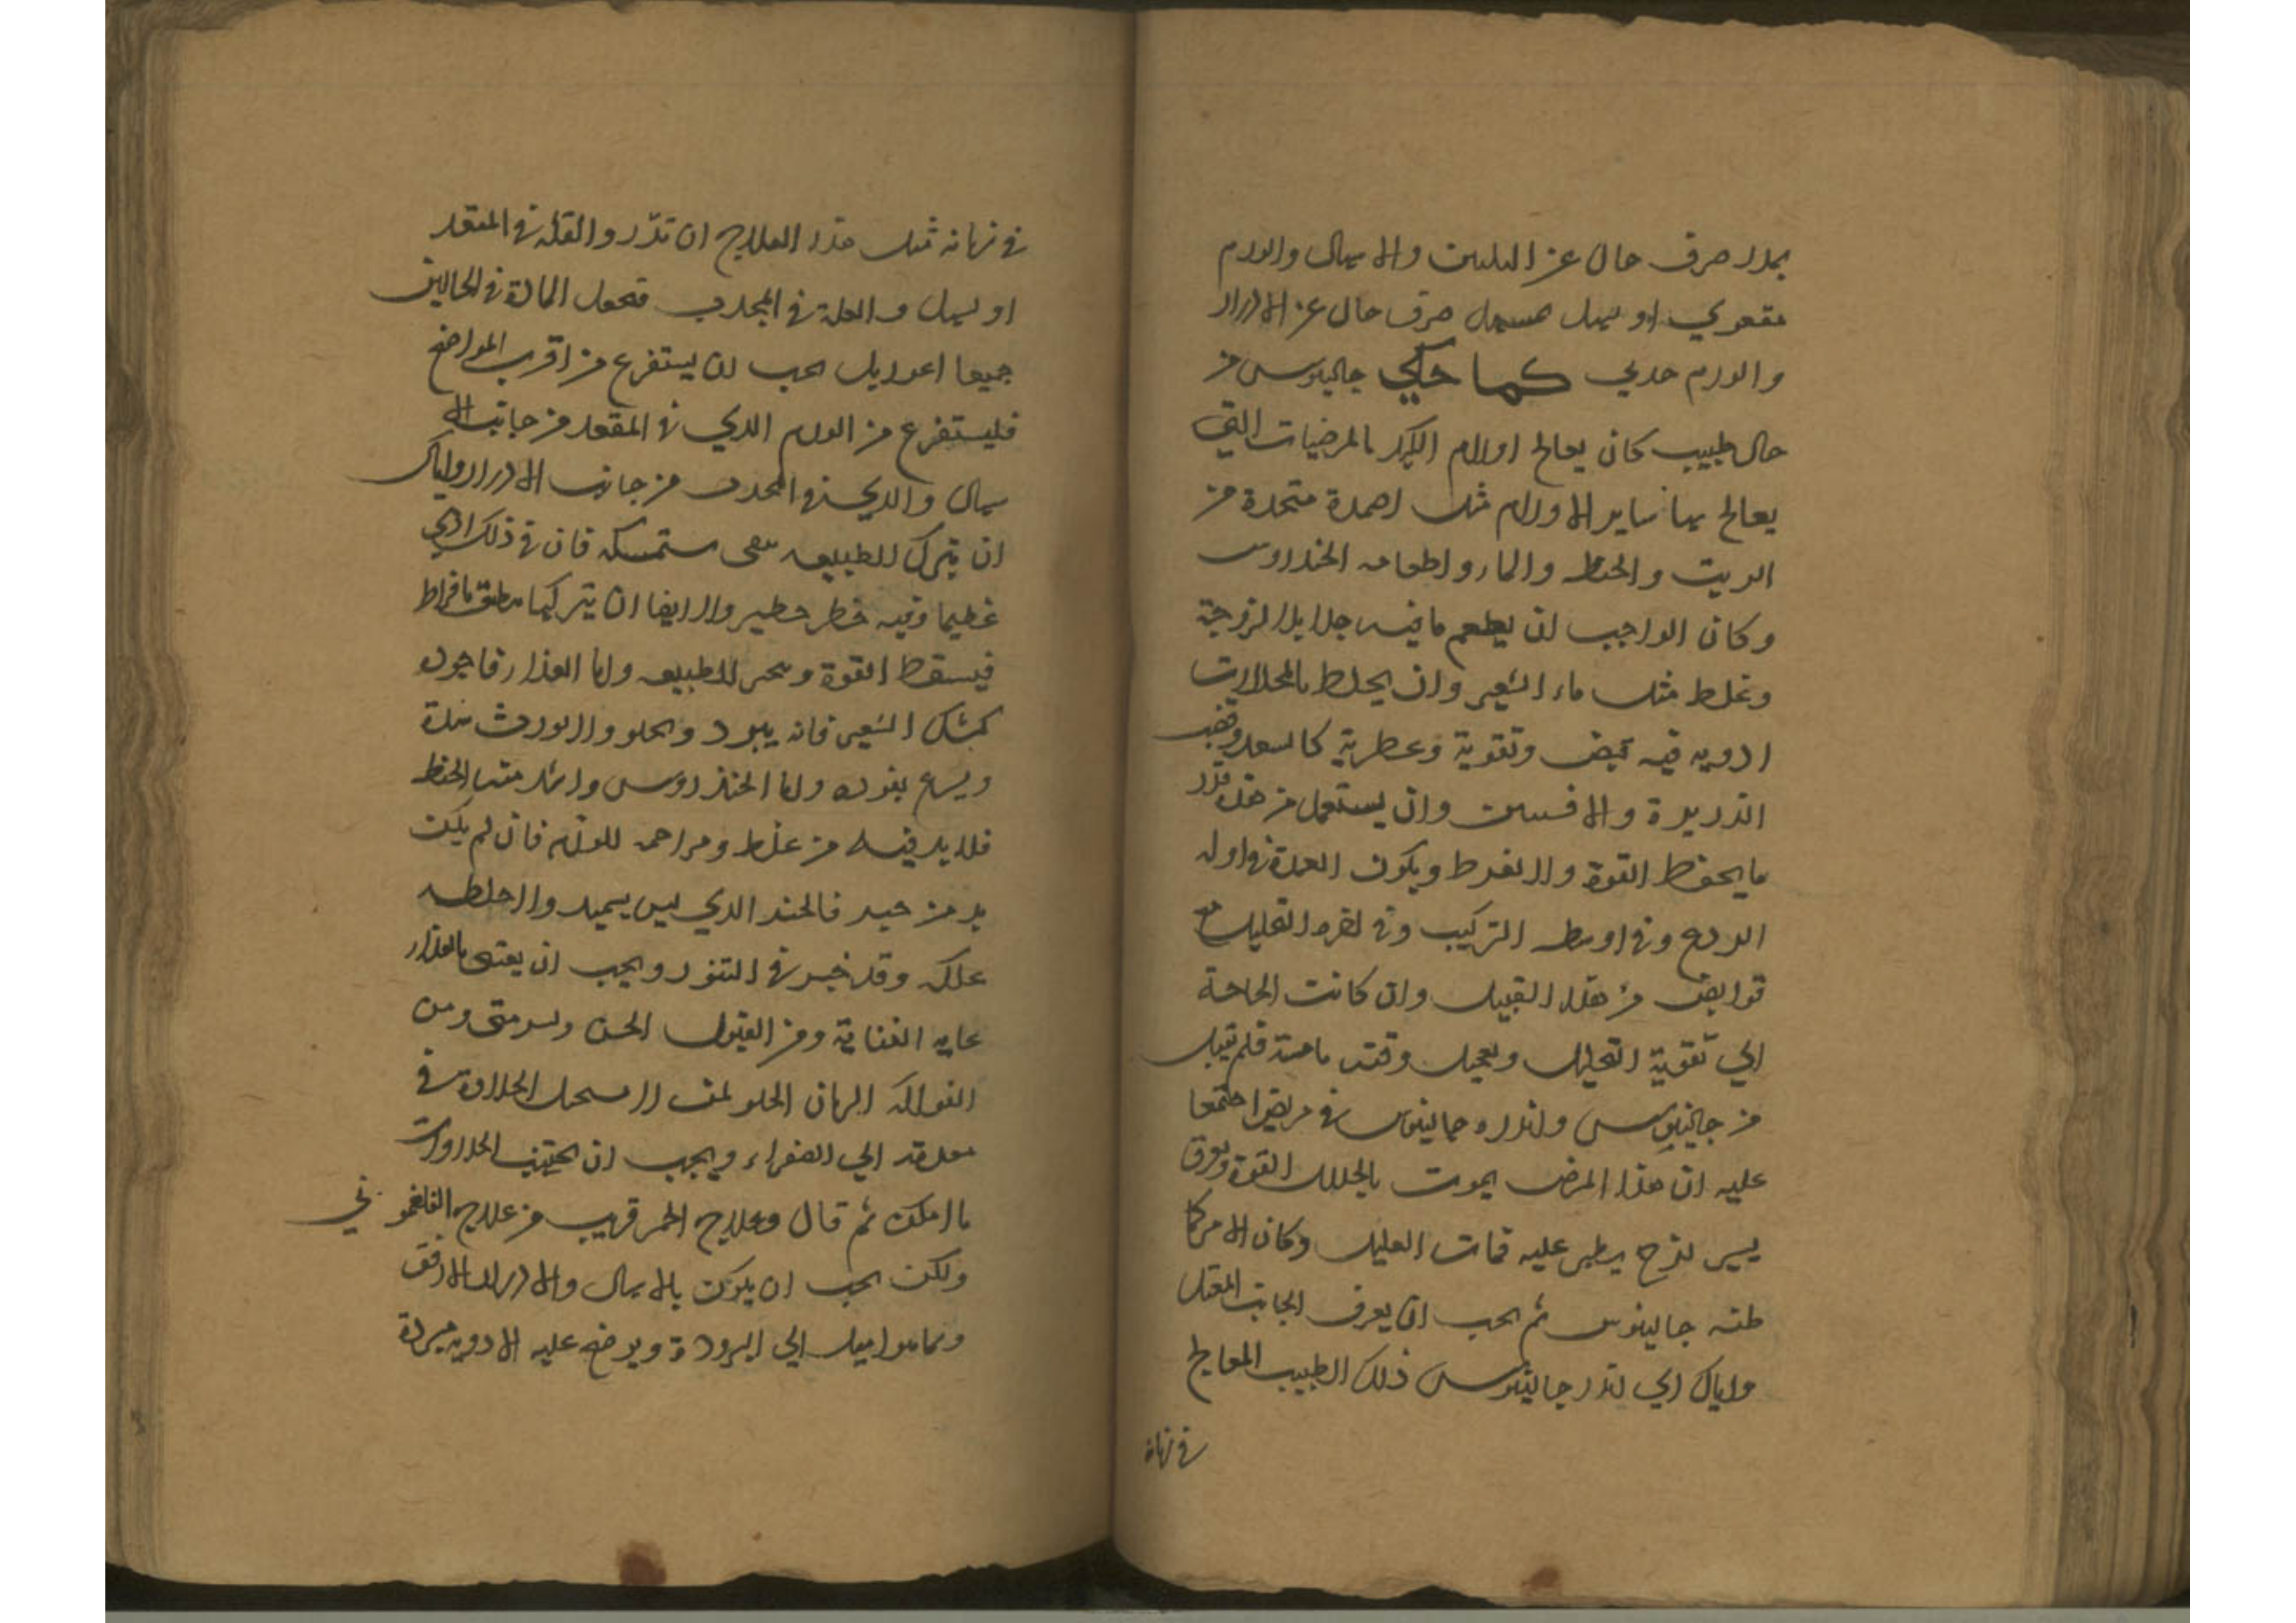 بمدر صرف خال عن التليين والاسهال والورم
مقعري او يسهل مسهل صرف خال عن الادرار
والورم حدبي كما حكي جالينوس من
حال طبيب كان يعالج اورام الكبد بالمرخيات التي
يعالج بها ساير الاورام مثل اضمدة متخذة من
الزيت والحنطه والماء واطعامه الخندروس
وكان الواجب ان يطعم ما فيه جلا بلا لزوجة
وغلظ مثل ماء الشعير وان يخلط بالمحللات
ادويه فيه قبض وتقوية وعطرية كالسعد وقصب
الذريرة والافسنتين وان يستعمل من هذه قدر
ما يحفظ القوة ولا يفرط ويكون العمدة في اوله
الردع وفي اوسطه التركيب وفي اخره التحليل مع
قوابض من هذا القبيل وان كانت الحاجة
الي تقوية التحليل وتعجيل وقته ماسة فلم يقبل
من جالينوس وانذره جالينوس في مريض اجتمعا
عليه ان هذا المرض يموت بانحلال القوة وبعرق
يسير لزج يظهر عليه فمات العليل وكان الامر كما
ظنه جالينوس ثم يجب ان يعرف الجانب المعتل
واياك اي انذر جالينوس ذلك الطبيب المعالج
في زمانه
في زمانه مثل هذا العلاج ان تدر والعلة في المقعر
او يسهل والعلة في المحدب فتجعل المادة في الحالين
جميعا اغور بل يجب ان يستفرغ من اقرب المواضع
فليستفرغ من الورم الذي في المقعر من جانب الا
سهال والذي في المحدب من جانب الادرار واياك
ان يترك للطبيعه تبقى مستمسكه فان في ذلك اذي
عظيما وفيه خطر خطير ولا ايضا ان يتركها تنطلق بافراط
فيسقط القوة وتخر الطبيعه واما الغذاء فاجوده
كشك الشعير فانه يبرد ويجلو ولا يورث سدة
ويسرع نفوذه واما الخندروس وما اشد منه الحنطه
فلا بد فيه من غلظ ومزاحمه للورم فان لم يكن
بد من خبز فالخبز الذي ليس بسميد ولا حنطه
علكه وقد خبز في التنور ويجب ان يعتني بالغذاء
غايه العناية ومن البقول الخس والسرمق ومن
الفواكه الرمان الحلو لمن لا تستحيل الحلاوة في
معدته الي الصفراء ويجب ان يجتنب الحلاوات
ما امكن ثم قال وعلاج الحمر قريب من علاج الفلغموني
ولكن يجب ان يكون بالاسهال والادرار الارفق
وبما هو اميل الي البرودة ويوضع عليه الادويه مبردة